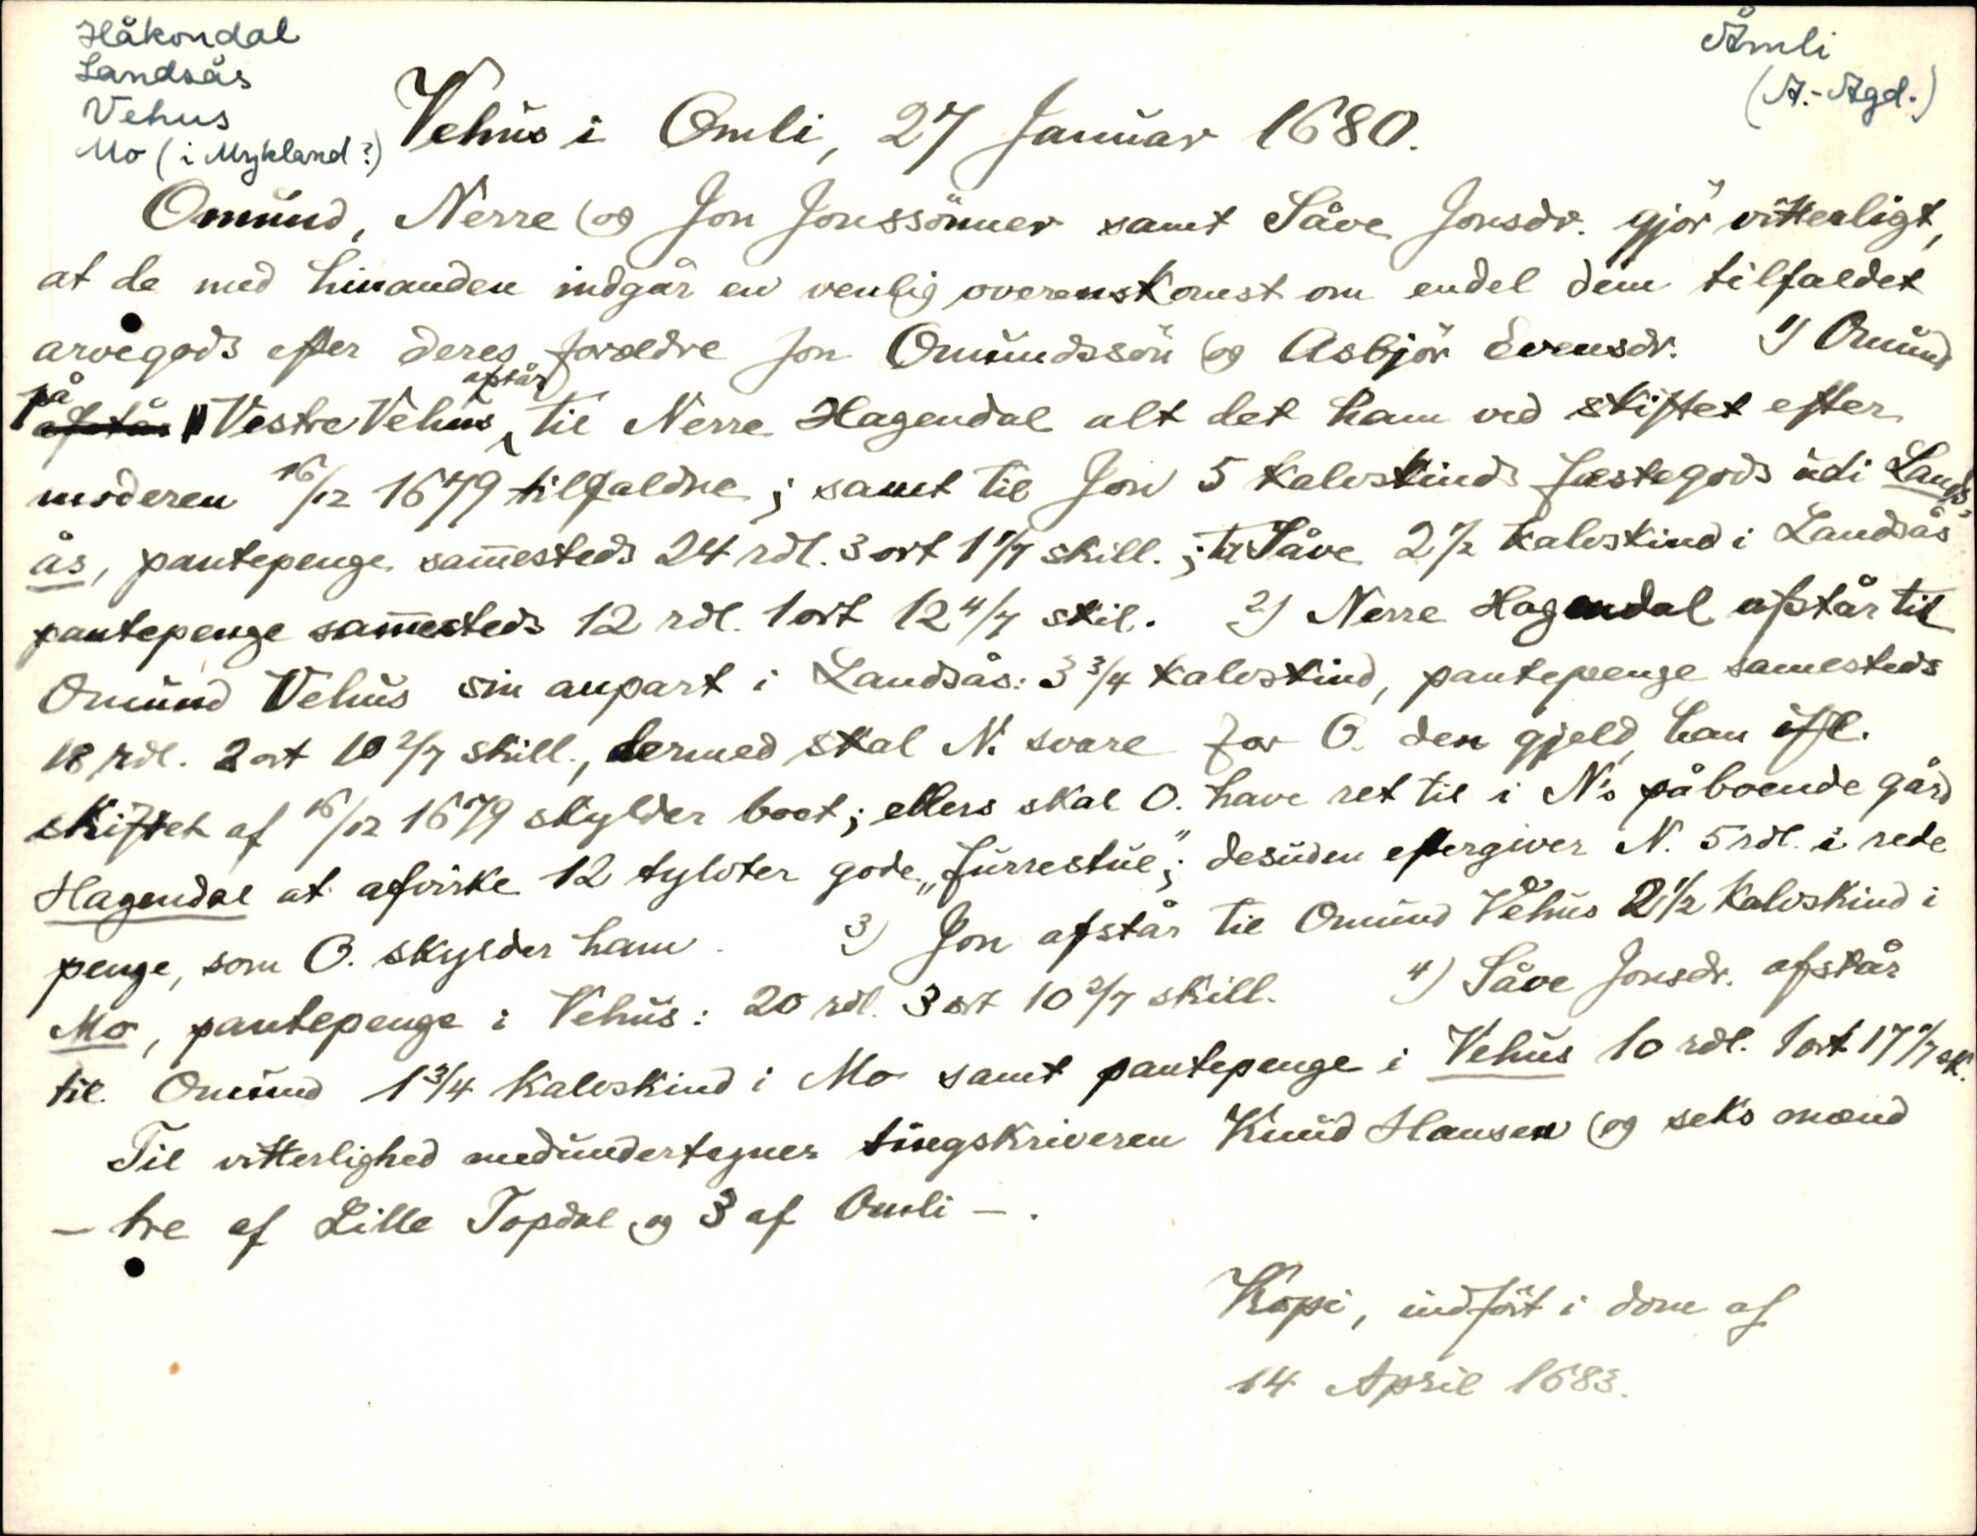 Håkondal
Landsås
Vehus
Mo (i Mykland?)
Åmli
(A.-Agd.)
Vehus i Omli, 27 Januar 1680.
Omund, Nerre og Jon Jonssönner samt Såve Jonsdr. gjör vitterligt,
at de med hinanden indgår en venlig overenskomst om endel dem tilfaldet
arvegods efter deres forældre Jon Omundssön og Asbjör Evensdr. 1) Omund
på Vestre Vehus afstår til Nerre Hagendal alt det ham ved skiftet efter
moderen 16/12 1679 tilfaldne; samt til Jon 5 kalvskinds fæstegods udi Lands-
ås, pantepenge sam̅esteds 24 rdl. 3 ort 1 1/7 skill.; til Såve 2 1/2 kalvskind i Landsås
pantepenge sam̅esteds 12 rdl. 1 ort 12 4/7 skil. 2) Nerre Hagendal afstår til
Omund Vehus sin anpart i Landsås: 3 3/4 kalvskind, pantepenge samesteds
18 rdl. 2 ort 10 2/7 skill., dermed skal N. svare for O. den gjeld, han ifl.
skiftet af 16/12 1679 skylder boet; ellers skal O. have ret til i N's påboende gård
Hagendal at afvirke 12 tylvter gode „furrestue"; desuden eftergiver N. 5 rdl. i rede
penge, som O. skylder ham. 3) Jon afstår til Omund Vehus 2 1/2 kalvskind i
Mo, pantepenge i Vehus: 20 rdl. 3 ort 10 2/7 skill. 4) Såve Jonsdr. afstår
til Omund 1 3/4 kalvskind i Mo samt pantepenge i Vehus 10 rdl. 1 ort 17 1/7 sk.
Til vitterlighed medundertegner tingskriveren Knud Hansen og seks mænd
– tre af Lille Topdal og 3 af Omli –.
Kopi, indfört i dom af
14 April 1683.